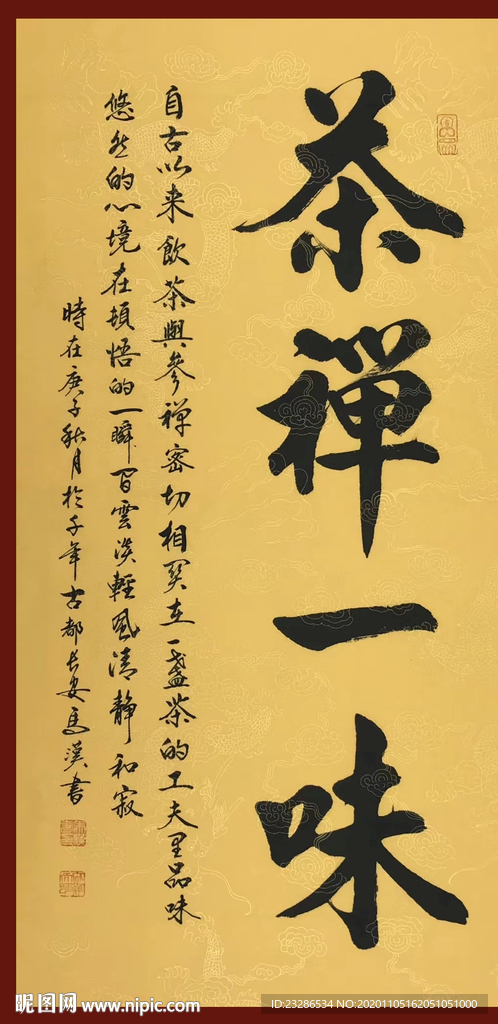 茶禪一味
自古以来飲茶與參禅密切相関在一盏茶的工夫里品味
悠然的心境在頓悟的一瞬间雲淡輕風清静和寂
時在庚子秋月於千年古都长安馬漢書
昵图网 www.nipic.com
ID:23286534 NO:20201105162051051000